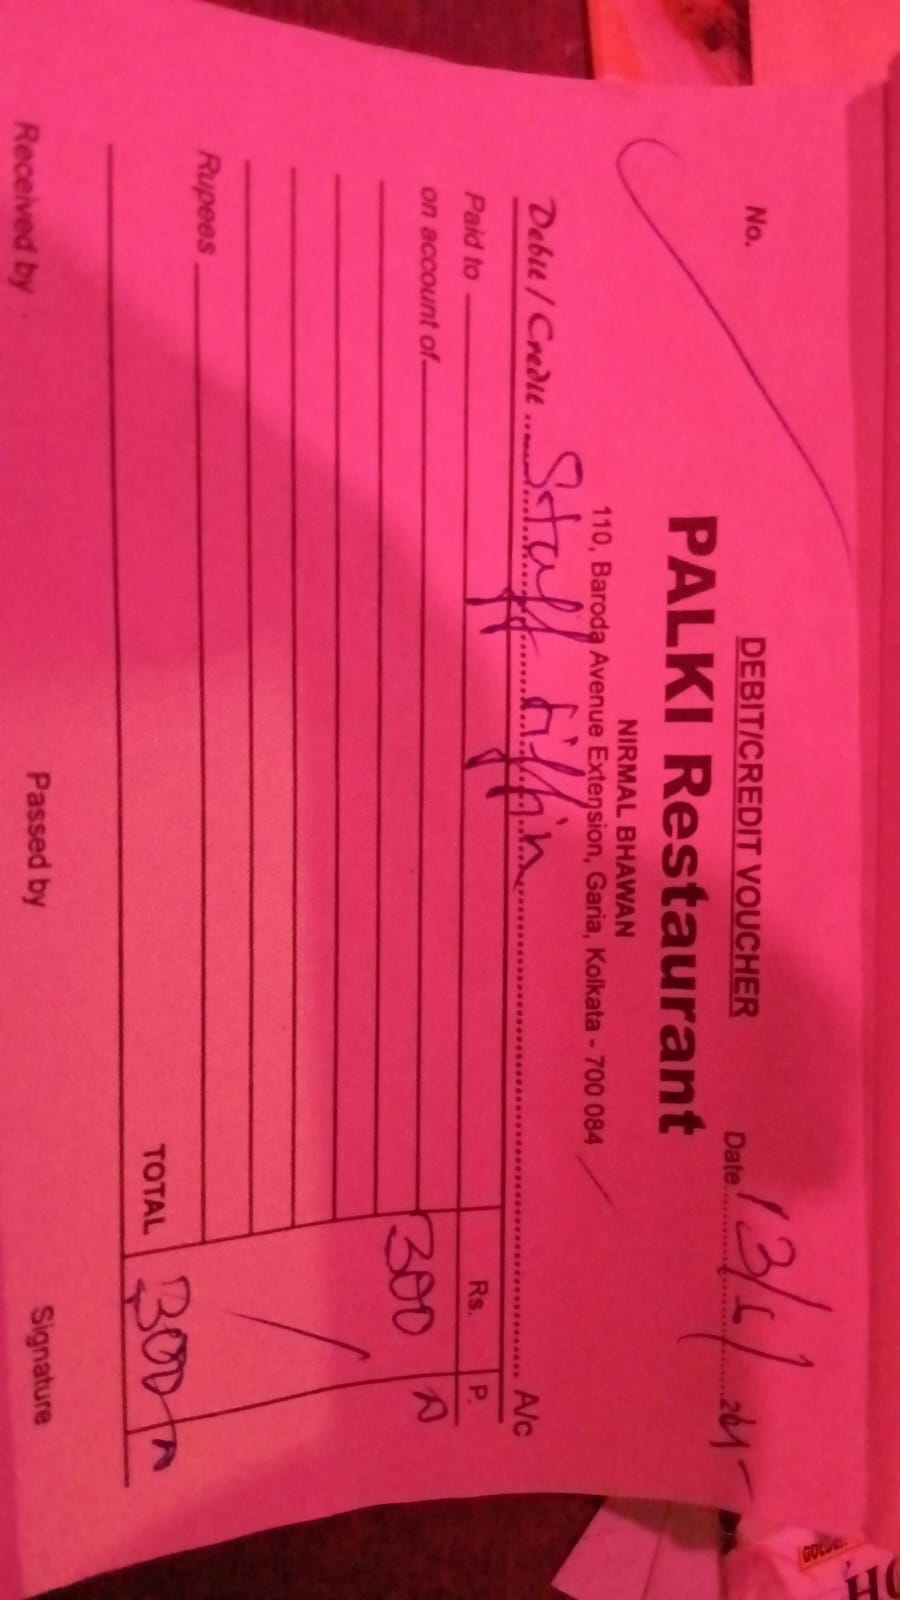 DEBIT/CREDIT VOUCHER
No.
Date 13/6/
PALKI Restaurant
NIRMAL BHAWAN
110, Baroda Avenue Extension, Garia, Kolkata - 700 084
Debit / Credit Staff tiffin A/c
Paid to Rs. P.
on account of 300
Rupees
TOTAL 300
Received by Passed by Signature
GOLDEN
HO